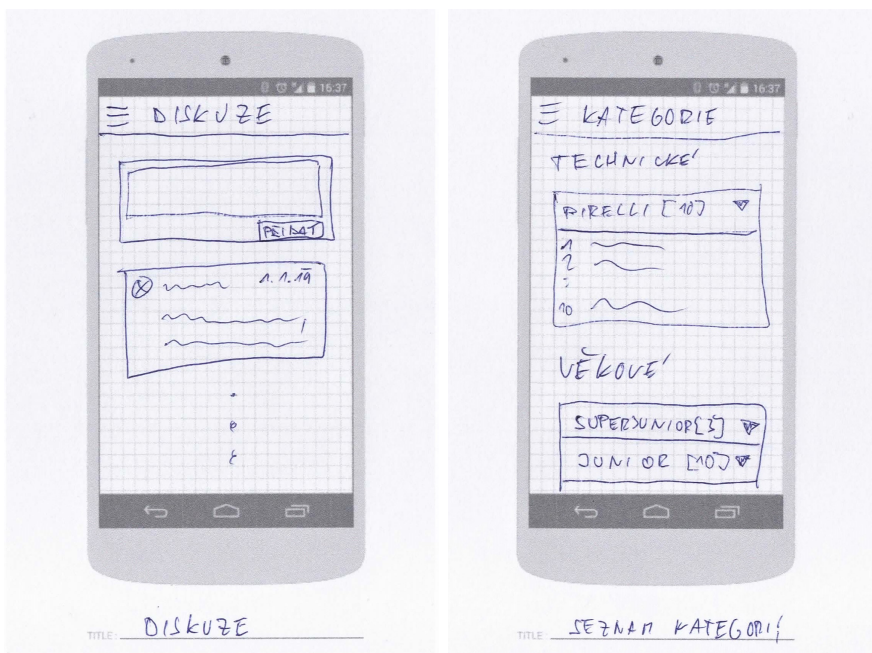 16:37
DISKUZE
PŘIDAT
1.1.19
TITLE: DISKUZE
16:37
KATEGORIE
TECHNICKÉ
PIRELLI [10]
1
2
10
VĚKOVÉ
SUPERJUNIOR[3]
JUNIOR [10]
TITLE: SEZNAM KATEGORIÍ